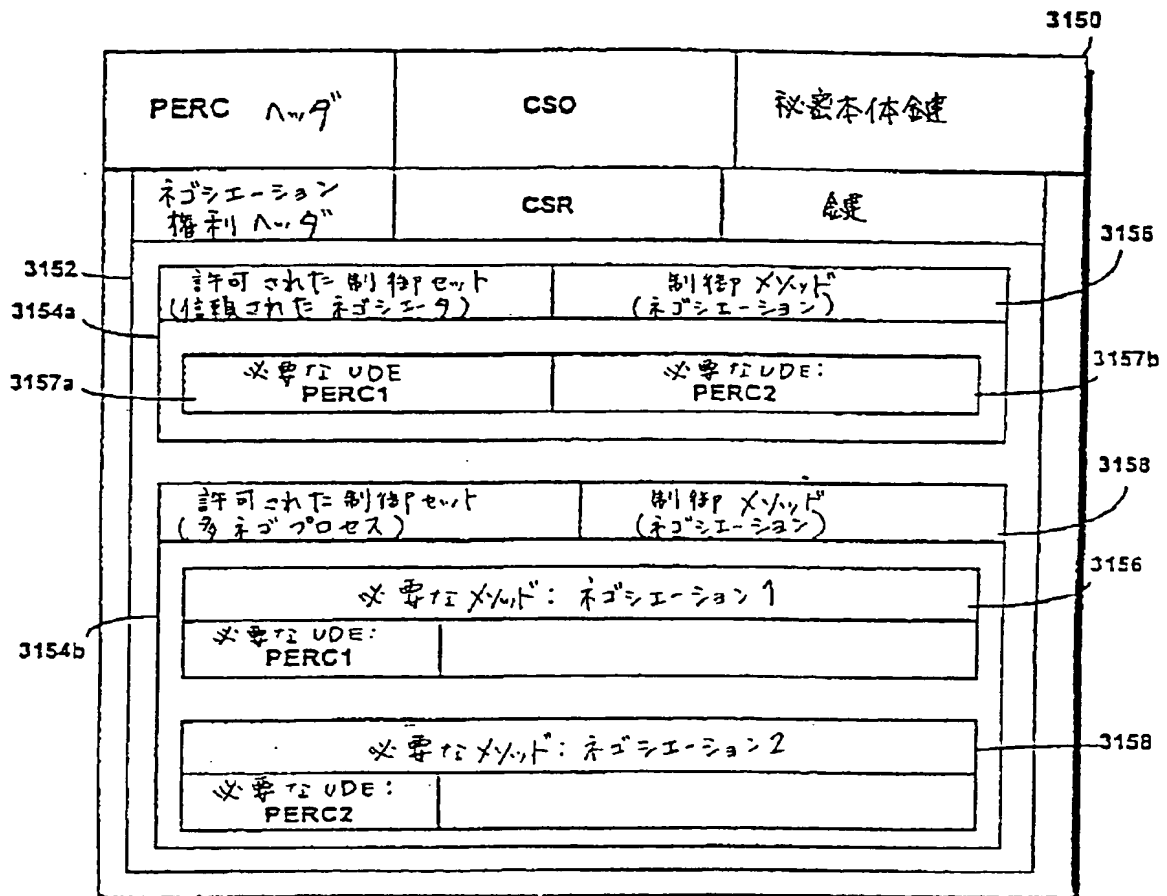 3150
PERC ヘッダ
CSO
秘密本体鍵
ネゴシエーション
権利 ヘッダ
CSR
鍵
3156
3152
許可された制御セット
(信頼されたネゴシエータ)
制御メソッド
(ネゴシエーション)
3154a
3157a
必要な UDE
PERC1
必要なUDE:
PERC2
3157b
3158
許可された制御セット
(多ネゴプロセス)
制御メソッド
(ネゴシエーション)
3156
必要なメソッド: ネゴシエーション1
必要な UDE:
PERC1
3154b
必要なメソッド: ネゴシエーション2
3158
必要な UDE:
PERC2